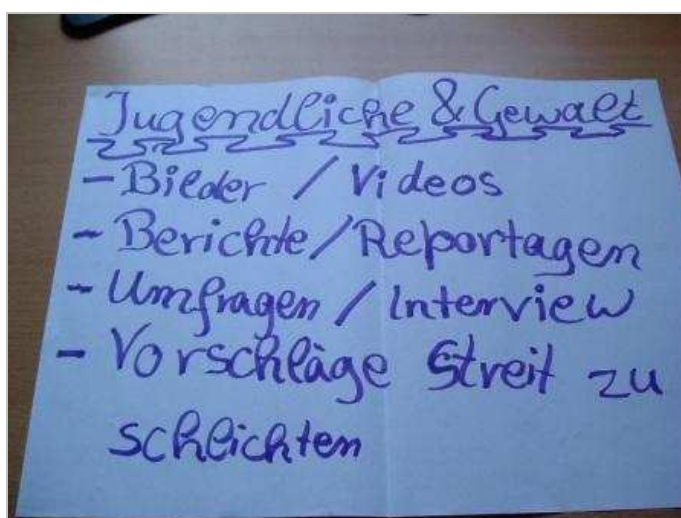 Jugendliche & Gewalt
- Bilder / Videos
- Berichte / Reportagen
- Umfragen / Interview
- Vorschläge Streit zu
schlichten